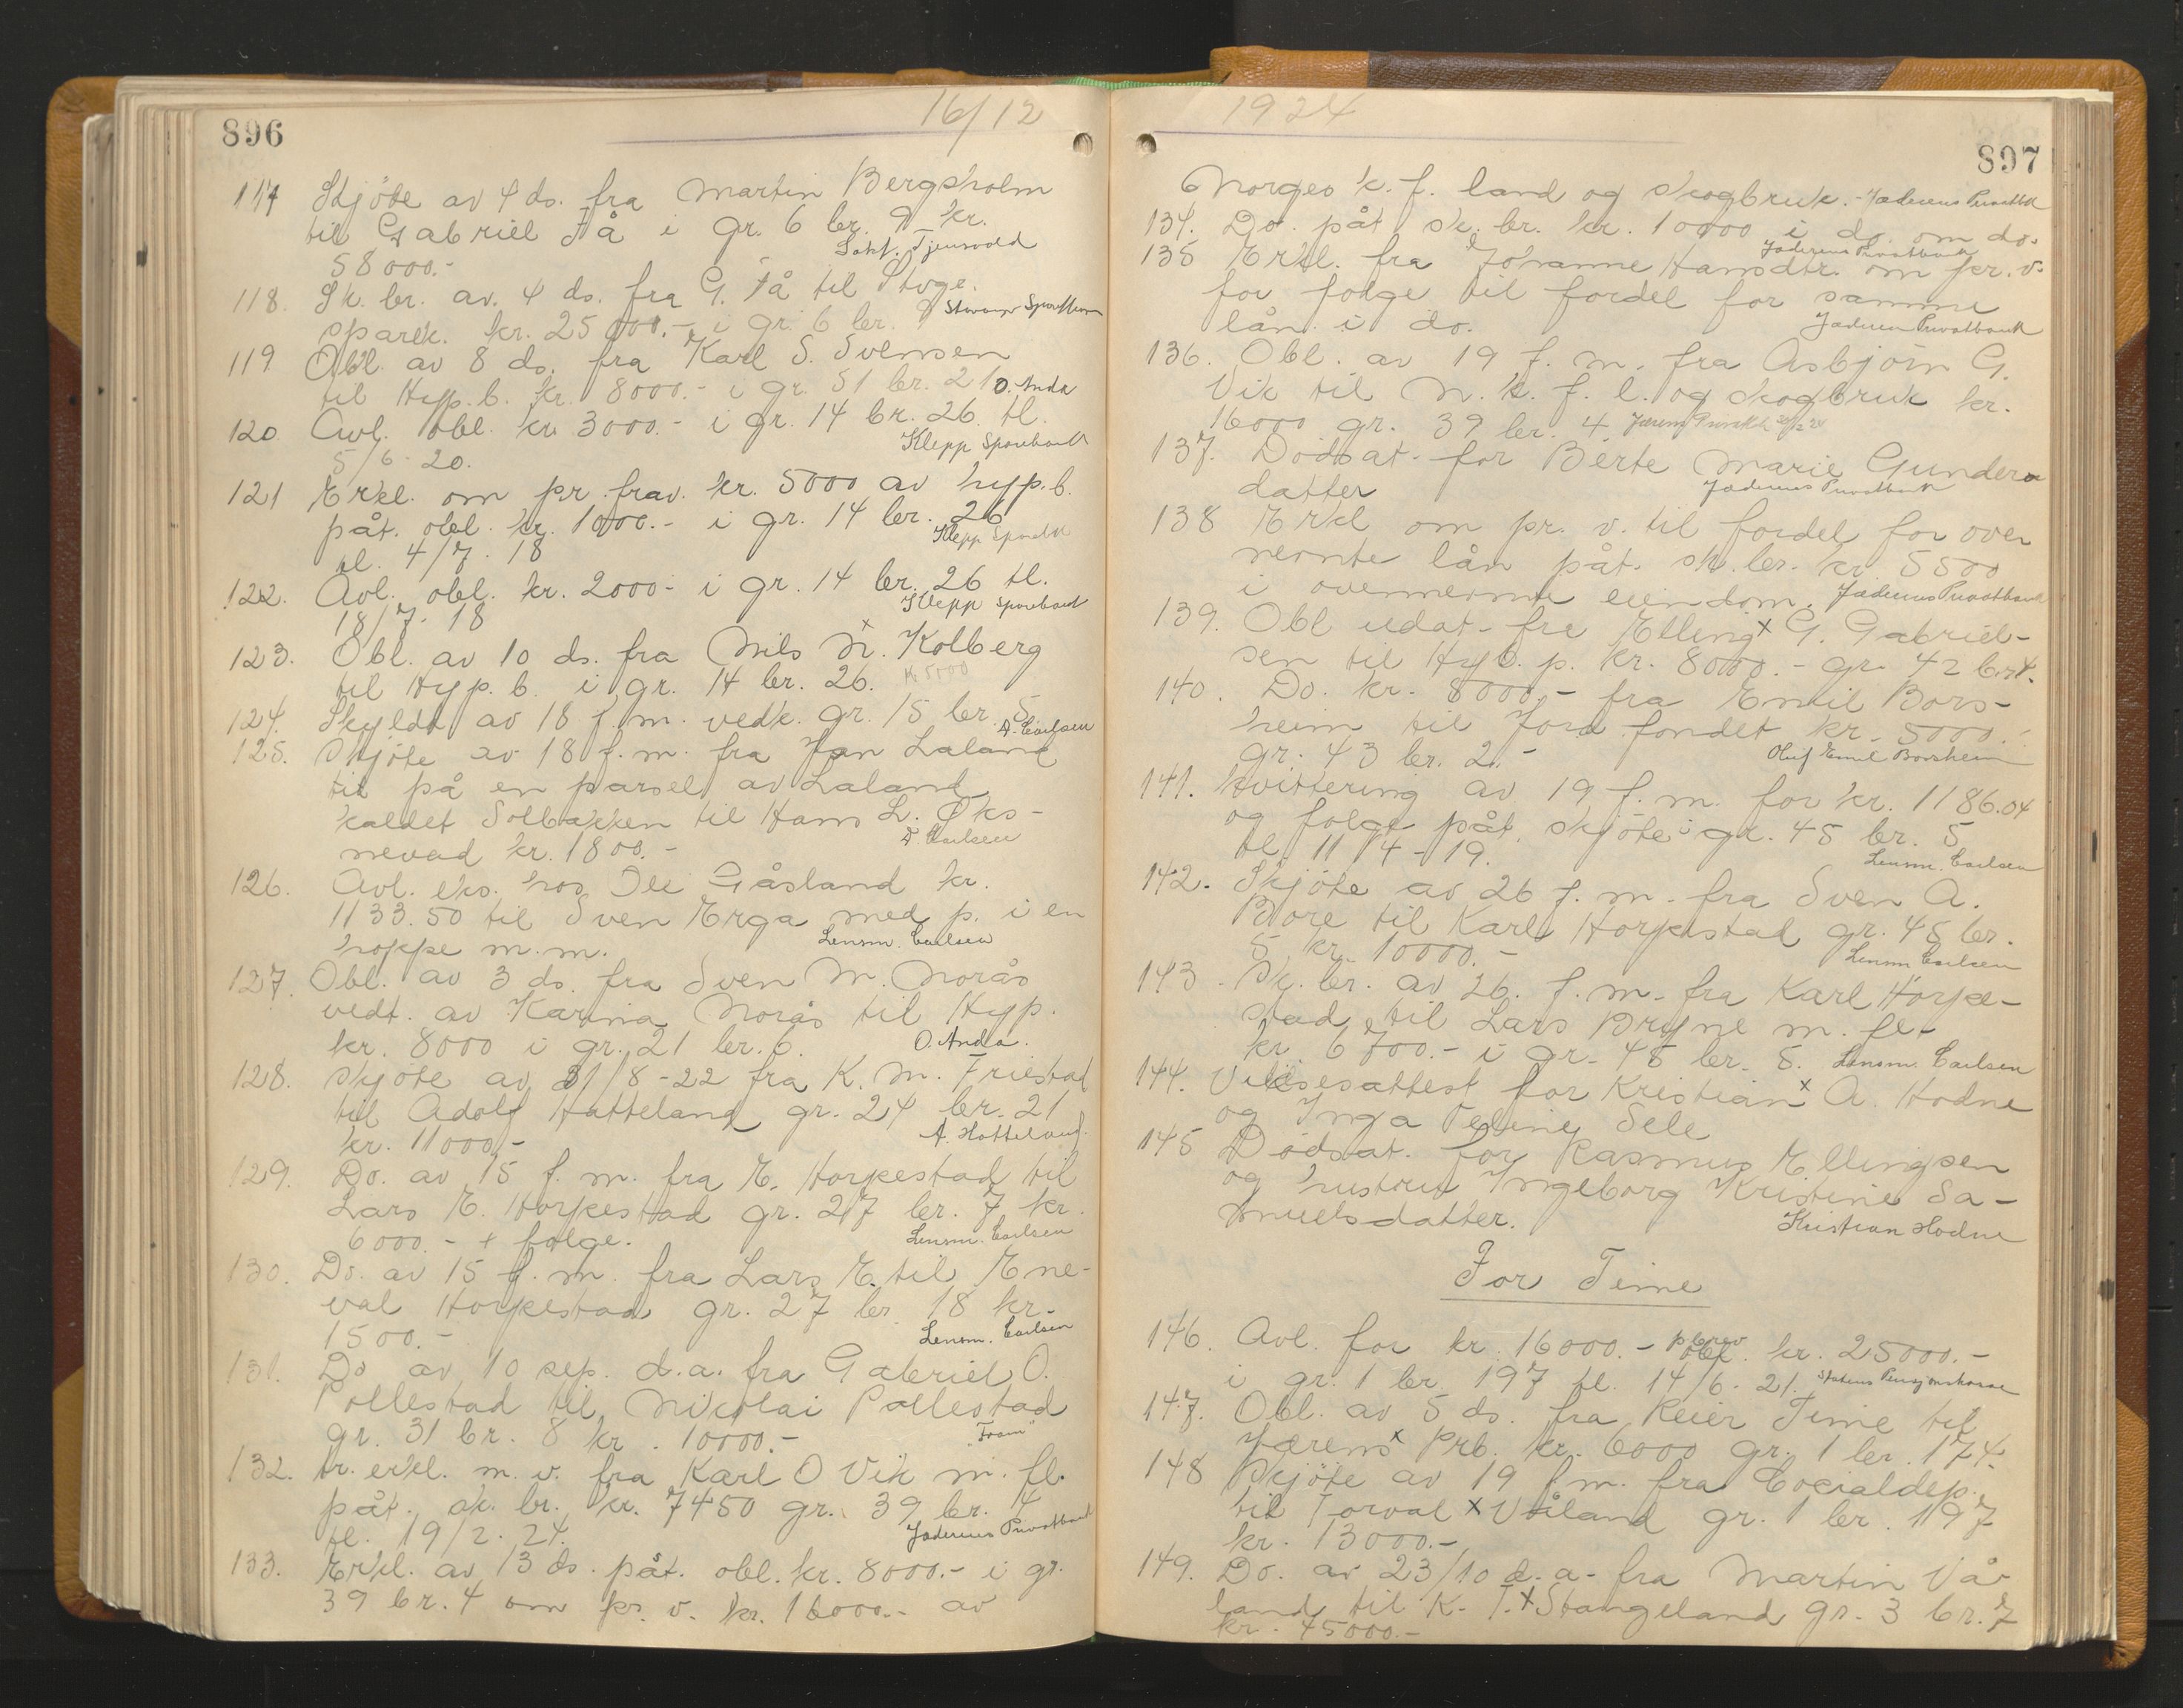 896
16/12
117 Skjöte av 4 ds. fra Martin Bergsholm
til Gabriel Tå i gr. 6 br. 9 kr.
58000.- Sakf. Tjensvold
118. Sk. br. av 4 ds. fra G. Tå til Stvge.
sparek. kr. 25000.- i gr. 6 br. 9
119 Obl. av 8 ds. fra Karl S. Svensen
til Hyp.b. kr. 8000.- i gr. 51 br. 21 O. Anda
120 Avl. obl. kr. 3000.- i gr. 14 br. 26 tl.
5/6-20. Klepp Sparebank
121 Erkl. om pr. frav. kr. 5000 av hyp.b.
påt. obl. kr. 1000.- i gr. 14 br. 26
tl. 4/7.18 Klepp Sparebk
122. Avl. obl. kr. 2000- i gr. 14 br. 26 tl.
18/7.18 Klepp Sparebank
123. Obl. av 10 ds. fra Nils N. x Kolberg
til Hyp.b. i gr. 14 br. 26. kr 5000
124. Skyldd av 18 f.m. vedk. gr. 15 br. 5
A. Carlsen
125. Skjöte av 18 f.m. fra Jan Laland
til på en parsel av Laland
kaldet Solbakken til Hans L. Øks-
nevad kr. 1800.- A. Carlsen
126. Avl. eks. hos Ole Gåsland kr.
1133.50 til Sven Erga med p. i en
hoppe m.m. Lensm. Carlsen
127. Obl. av 3 ds. fra Sven M. Norås
vedt. av Karina Norås til Hyp.
kr. 8000 i gr. 21 br. 6. O. Anda.
128. Skjöte av 31/8-22 fra K. M. Friestad
til Adolf Hatteland gr. 24 br. 21
kr. 11000- A. Hatteland.
129. Do. av 15 f.m. fra E. Horpestad til
Lars E. Horpestad gr. 27 br. 7 kr.
6000.- + følge. Lensm. Carlsen
130. Do. av 15 f.m. fra Lars E. til Ene-
val Horpestad gr. 27 br. 18 kr.
1500.- Lensm. Carlsen
131. Do av 10 sep. d.a. fra Gabriel O.
Pollestad til Nikolai Pollestad
gr. 31 br. 8 kr. 10000.-
132. tr. erkl. m. v. fra Karl O Vik m. fl.
påt. sk. br. kr. 7450 gr. 39 br. 4
tl. 19/2.24. Jæderens Privatbank
133. Erkl. av 13 ds. påt. obl. kr. 8000.- i gr.
39 br. 4 om pr. v. kr. 16000.- av
1924
897
Norges k. f. land og skogbruk.- Jæderens Privatbk
134. Do. påt sk. br. kr. 10000 i do. om do.
Jæderens Privatbank
135 Erkl. fra Johanne Hansdtr. om pr. v.
for følge til fordel for samme
lån i do. Jæderen Privatbank
136. Obl. av 19 f.m. fra Asbjörn G.
Vik til N. k. f. l. og skogbruk kr.
16000 gr. 39 br. 4.
137. Dödsat. for Berte Marie Gunders
datter Jæderens Privatbank
138 Erkl om pr. v. til fordel for oven
nevnte lån påt. sk. br. kr 5500
i ovennevnte eiendom. Jæderens Privatbank
139. Obl udat- fra Elling x G. Gabriel-
sen til Hyb. p. kr. 8000.- gr. 42 br. 4.
140. Do. kr. 8000.- fra Emil Bors-
heim til Jord fondet kr. 5000.
gr. 43 br. 2.- Oluf Emil Borsheim
141. Kvittering av 19 f.m. for kr. 1186.04
og følge påt. skjöte i gr. 45 br. 5
tl 11/4-19. Lensm. Carlsen
142. Skjöte av 26 f.m. fra Sven A.
Bore til Karl Horpestad gr. 45 br.
5 kr. 10000.- Lensm Carlsen
143. Sk. br. av 26. f.m. fra Karl Horpe-
stad til Lars Bryne m. fl.
kr. 6700.- i gr. 45 br. 5. Lensm. Carlsen
144. Vielsesattest for Kristian x A. Hodne
og Inga Teline Sele
145 Dödsat. for Rasmus Ellingsen
og hustru Ingeborg Kristine Sa-
muelsdatter. Kristian Hodne
For Time
146. Avl. for kr. 16000.- kr. 25000.-
i gr. 1 br. 197 tl. 14/6.21. Statens Pensjonskasse
147. Obl. av 5 ds. fra Reier Time til
Jærens x Prb. kr. 6000 gr. 1 br. 174.
148 Skjöte av 19 f.m. fra Cocialdep.
til Torval x Våland gr. 1 br. 197
kr. 13000.-
149. Do. av 23/10 d.a. fra Martin Vå-
land til K. T. x Stangeland gr. 3 br. 7
kr. 45000.-